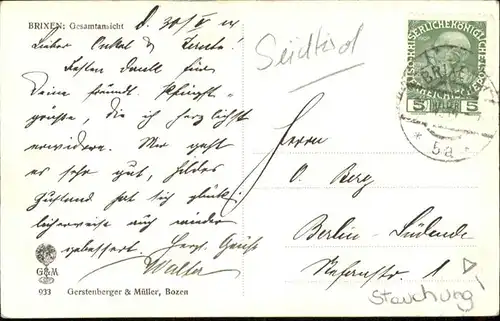 BRIXEN: Gesamtansicht
d. 30/V 14
Lieber Onkel & Tante!
Besten Dank für
Deine freundl. Pfingst-
grüße, die ich herzlichst
erwidere. Mir geht
es sehr gut, Hildes
Zustand hat sich glück-
licherweise auch wieder
gebessert. Herzl. Grüße
Walter
Südtirol
KAISERLICHE KÖNIGLICHE
ÖSTERREICHISCHE POST
5 HELLER 5
BRIXEN
* 5a *
Herrn
O. Berg
Berlin-Südende
1
Stauchung!
G&M
933 Gerstenberger & Müller, Bozen